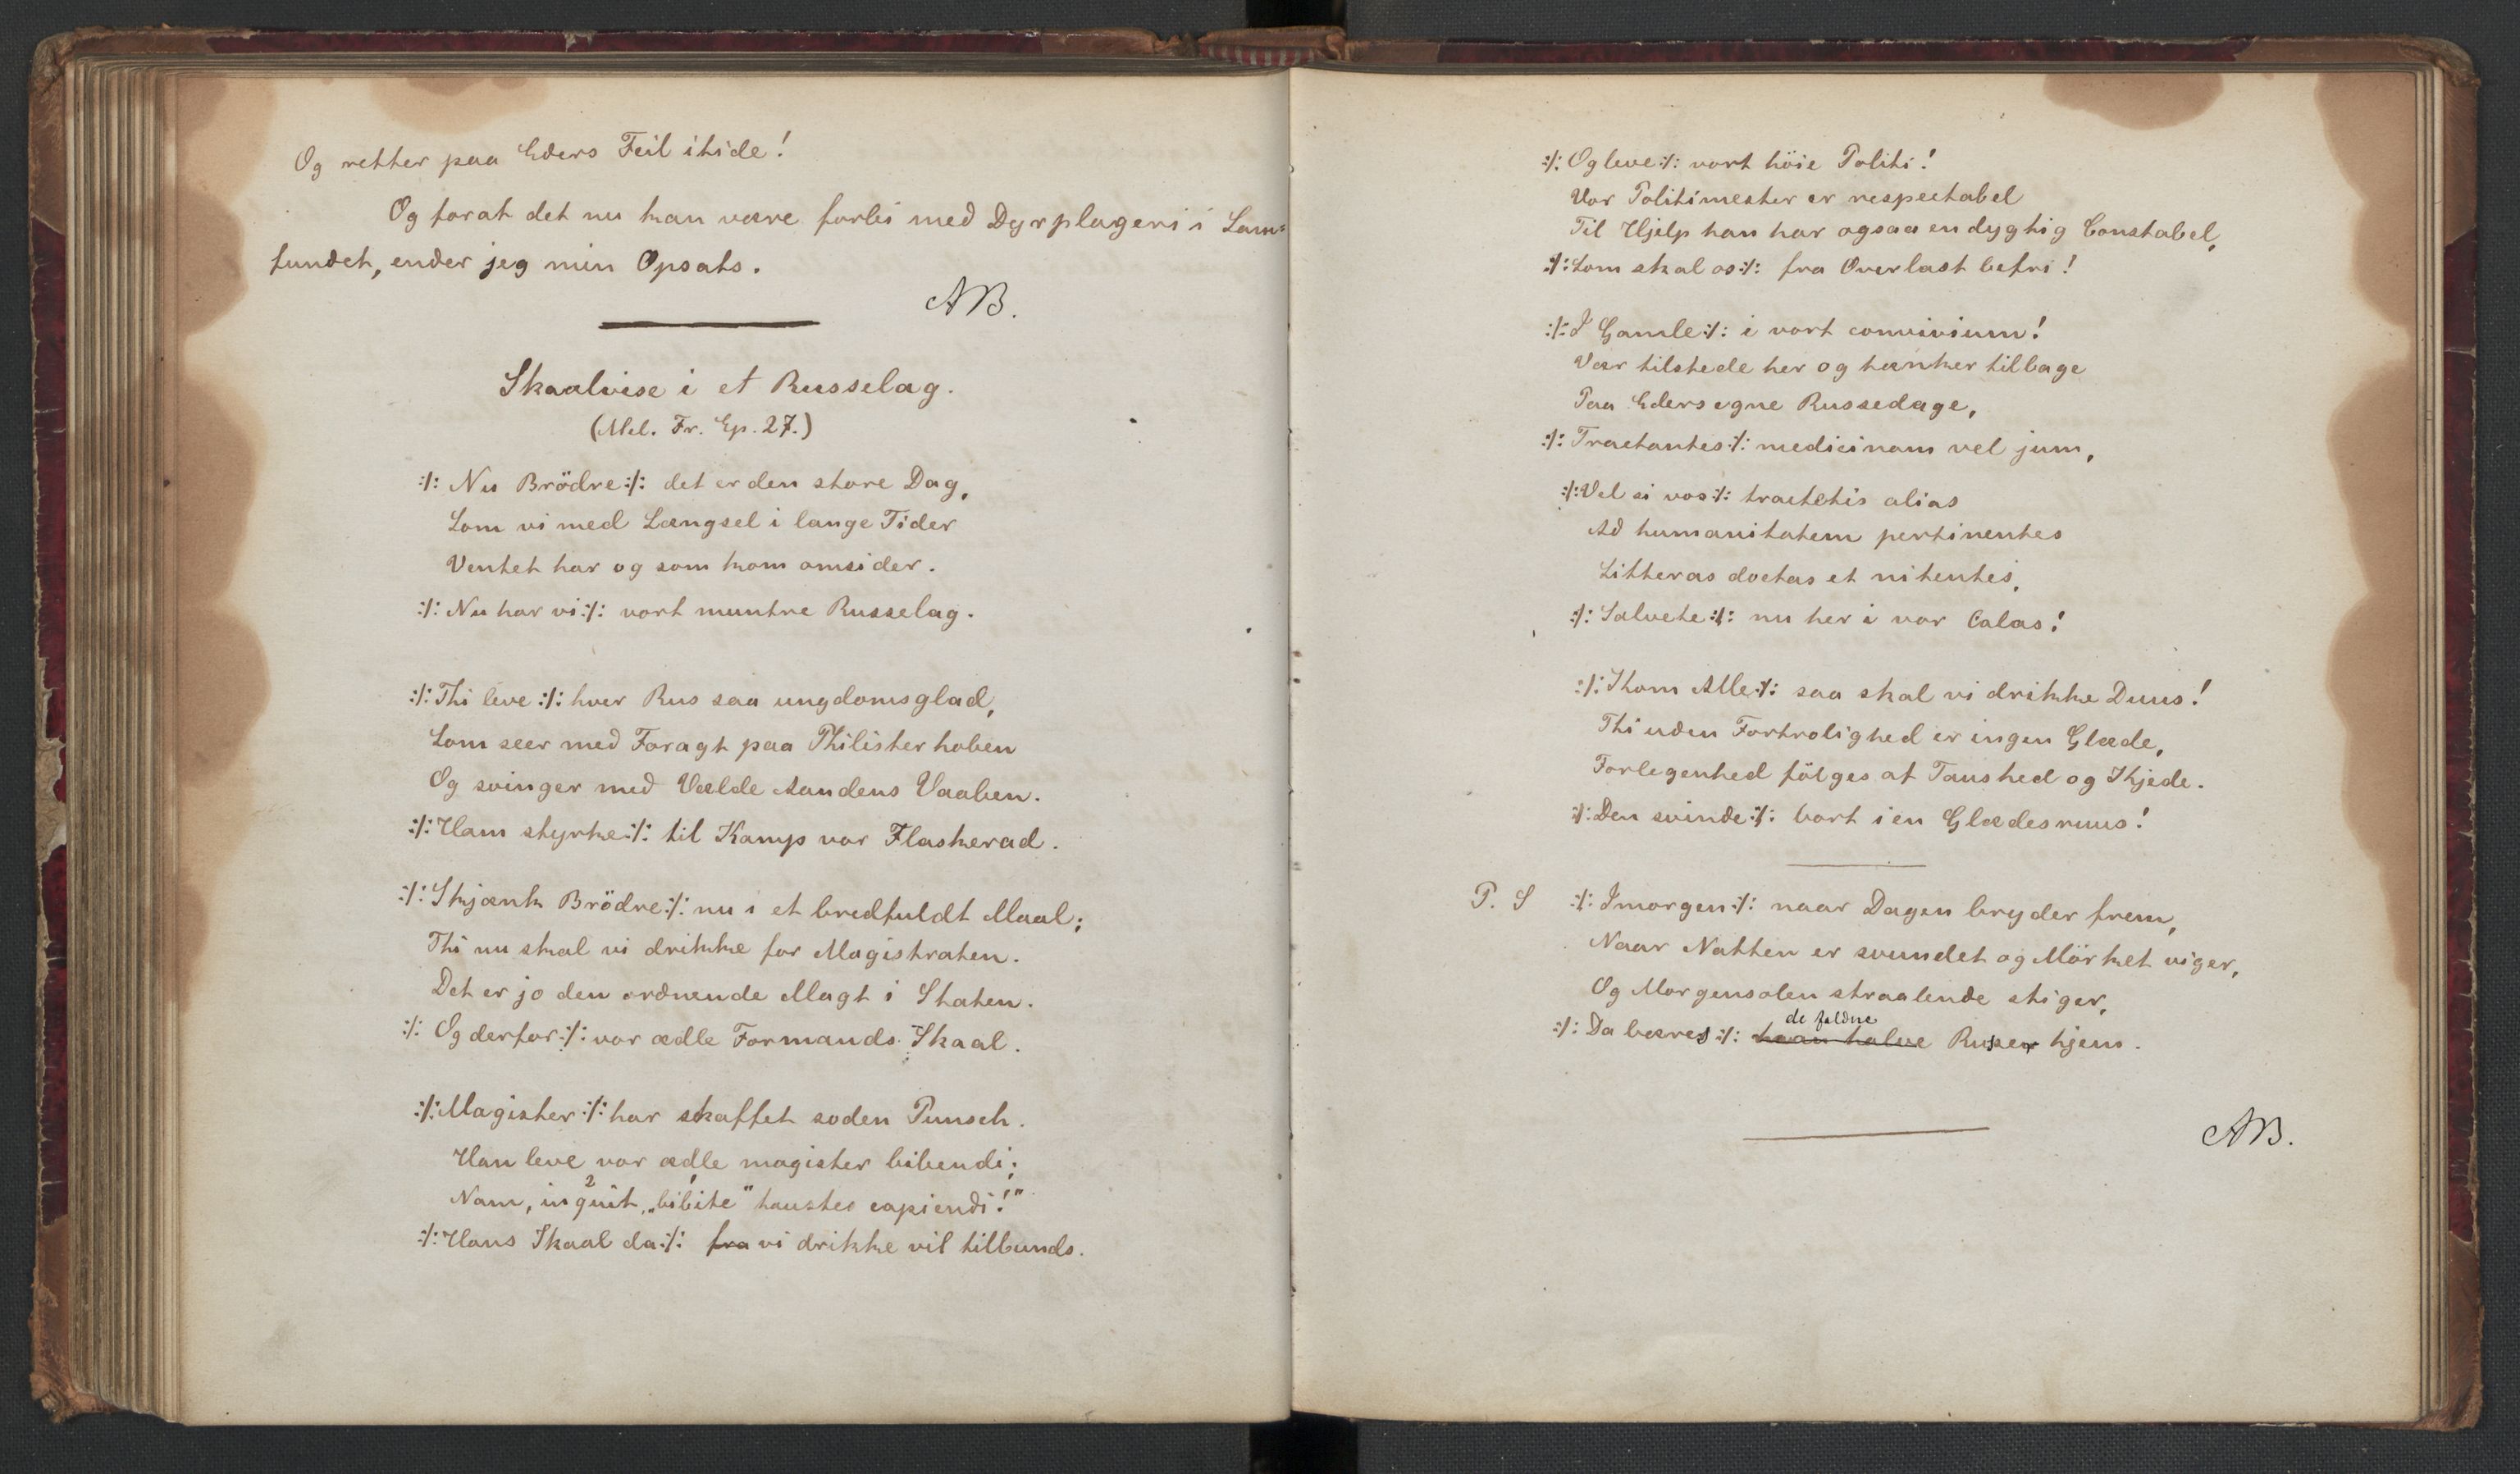 Og retter paa Eders Feil itide!
Og forat det nu kan være forbi med Dyrplageri i Sam=
fundet, ender jeg min Opsats.
AB.
Skaalvise i et Russelag.
(Mel. Fr. Ep. 27.)
:/: Nu Brödre :/: det er den store Dag,
Som vi med Længsel i lange Tider
Ventet har og som kom omsider.
:/: Nu har vi :/: vort muntre Russelag.
:/: Thi leve :/: hver Rus saa ungdomsglad,
Som seer med Foragt paa Philisterhoben
Og svinger med Vælde Aandens Vaaben.
:/: Ham styrke :/: til Kamp vor Flaskerad.
:/: Skjænk Brödre :/: nu i et bredfuldt Maal;
Thi nu skal vi drikke for Magistraten.
Det er jo den ordnende Magt i Staten.
:/: Og derfor :/: vor ædle Formands Skaal.
:/: Magister :/: har skaffet soden Punsch.
Han leve vor ædle magister bibendi;
Nam, inquit, 2 „bibite" haustes capiendi!"
:/: Hans Skaal da :/: fra vi drikke vil tilbunds.
:/: Og leve :/: vort höie Politi!
Vor Politimester er respectabel
Til Hjelp han har ogsaa en dygtig Constabel,
:/: Som skal os :/: fra Overlast befri!
:/: I Gamle :/: i vort convivium!
Vær tilstede her og tænker tilbage
Paa Eders egne Russedage,
:/: Tractantes :/: medicinam vel jum,
:/: Vel si vos :/: tractetis alias
Ad humanitatem pertinentes
Litteras doctas et nitentes,
:/: Salvete :/: nu her i vor Calas!
:/: Kom Alle :/: saa skal vi drikke Duus!
Thi uden Fortrolighed er ingen Glæde,
Forlegenhed fölges af Taushed og Kjede.
:/: Den svinde :/: bort i en Glædesruus!
P. S :/: Imorgen :/: naar Dagen bryder frem,
Naar Natten er svundet og Mörket viger,
Og Morgensolen straalende stiger,
de faldne
:/: Da bæres :/: hver halve Russer hjem.
AB.